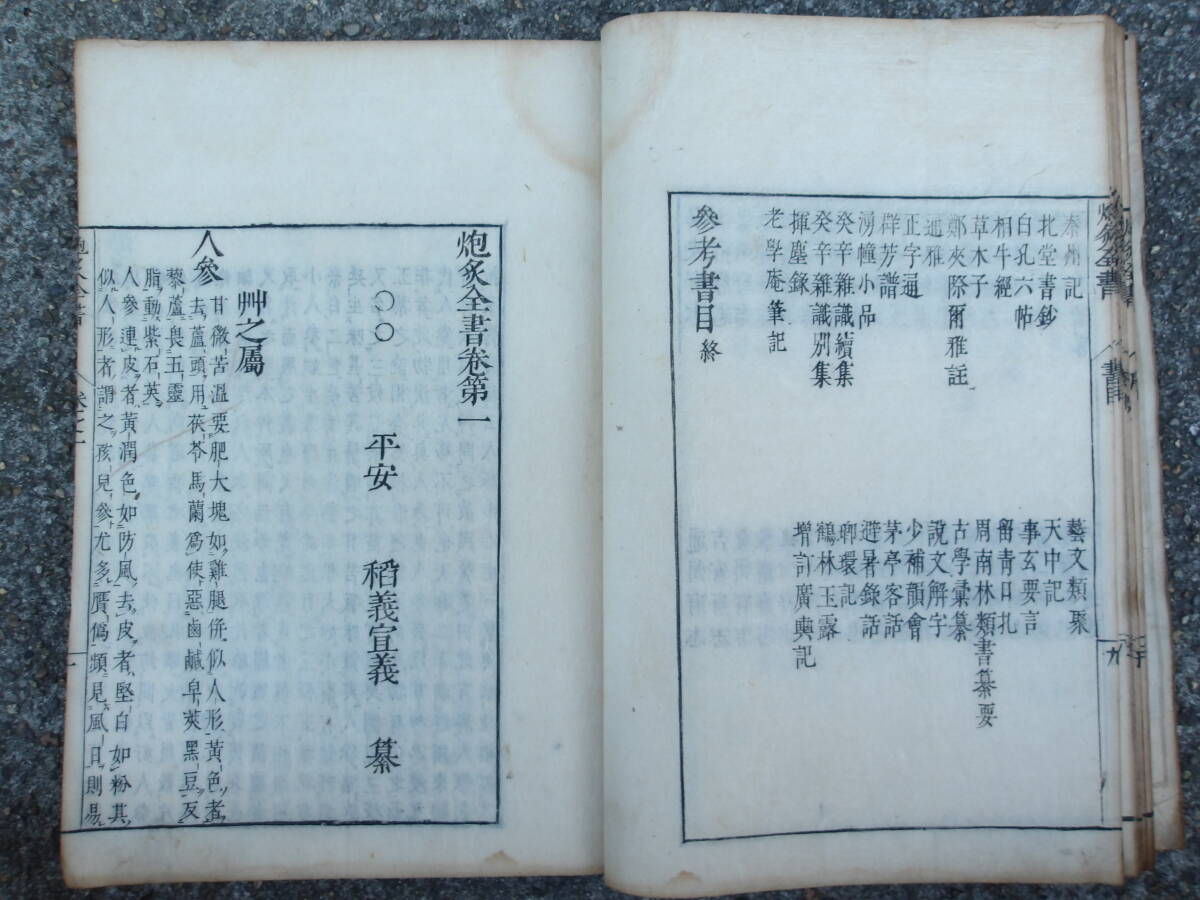 秦州記
北堂書鈔
白孔六帖
相牛經
草木子
鄭夾際爾雅註
通雅
正字通
群芳譜
湧幢小品
癸辛雜識續集
癸辛雜識別集
揮塵錄
老學庵筆記
藝文類聚
天中記
事玄要言
留青日札
周南林類書纂要
古學彙纂
說文解字
少補韻會
茅亭客話
避暑錄話
瑯環記
鶴林玉露
增訂廣輿記
參考書目終
炮炙全書
書目
九
炮炙全書卷第一
〇〇 平安 稻義宣義 纂
艸之屬
人參 甘微苦溫要肥大塊如雞腿併似人形黃色者
去蘆頭用茯苓馬蘭為使惡鹵鹹皁莢黑豆反
藜蘆畏五靈
脂動紫石英
人參連皮者黃潤色如防風去皮者堅白如粉其
似人形者謂之孩兒參尤多贋偽頻見風日則易
炮炙全書
卷之一
一